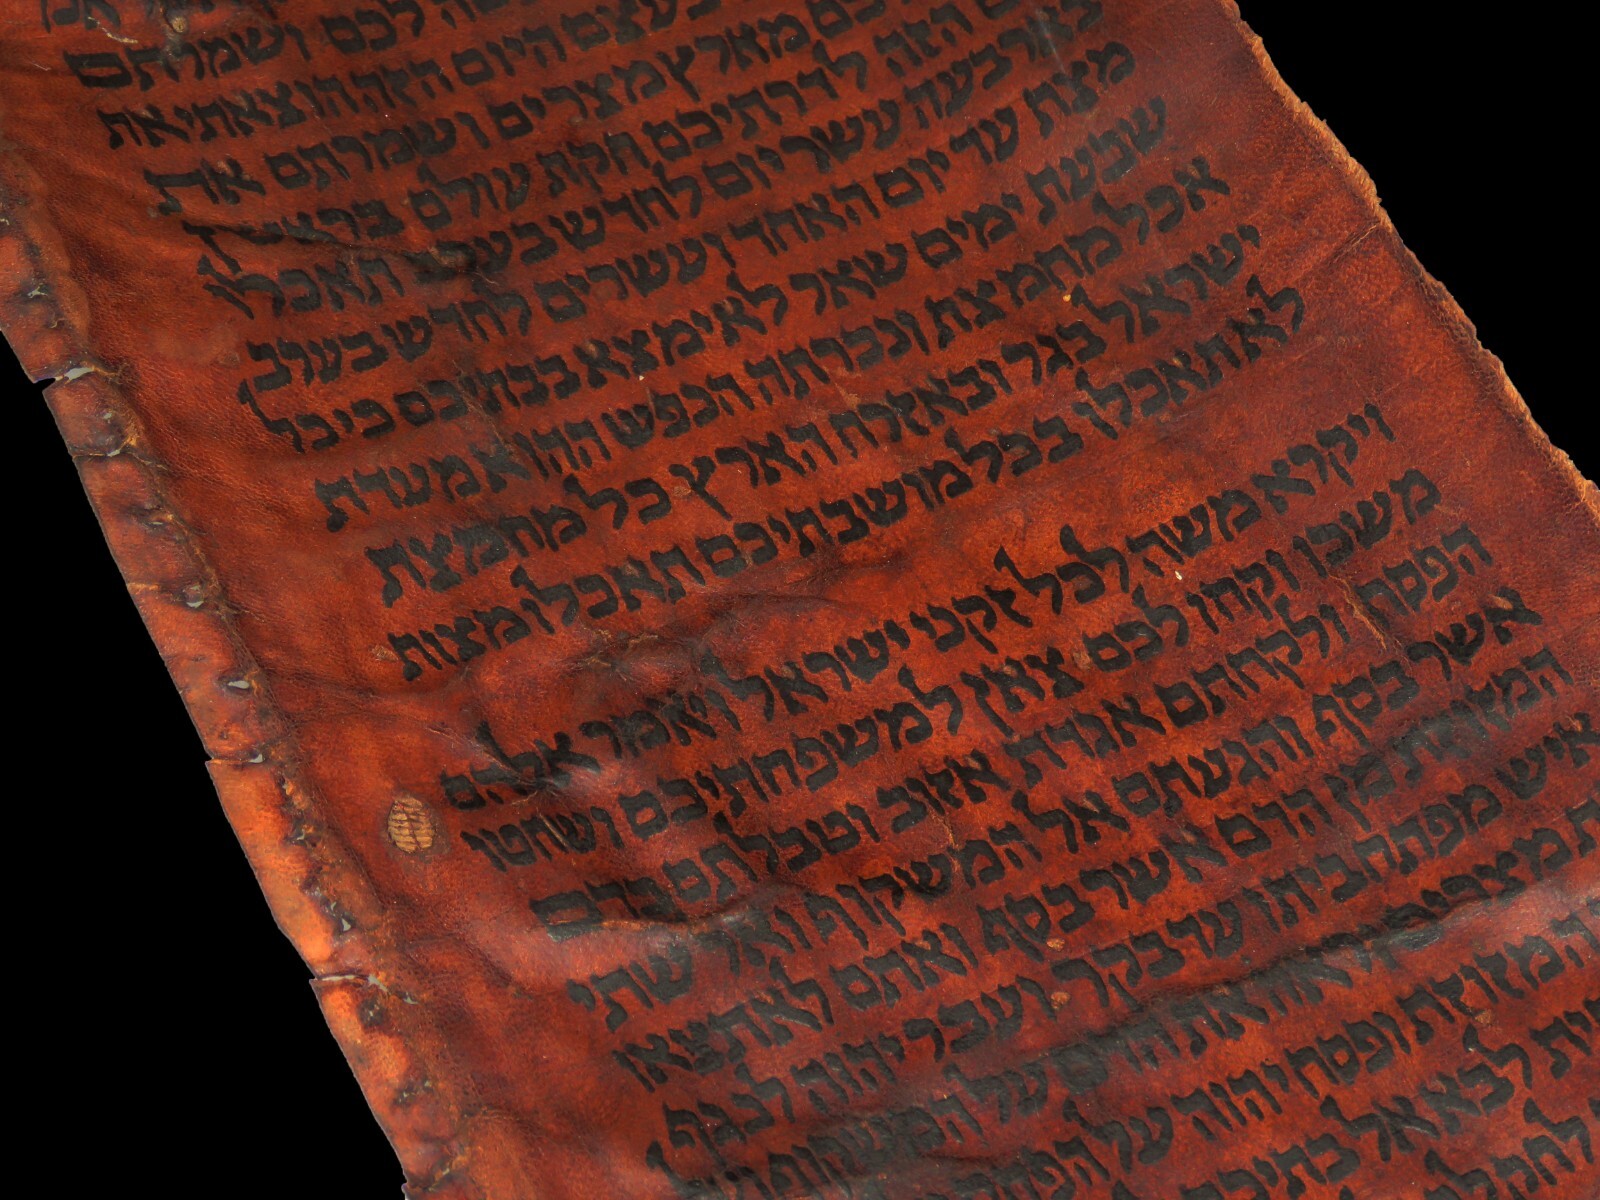 לכם ושמרתם
בעצם היום הזה הוצאתי את
מארץ מצרים ושמרתם את
הזה לדרתיכם חקת עולם בראשן
בארבעה עשר יום לחדש בערב תאכלו
מצת עד יום האחד ועשרים לחדש בערב
שבעת ימים שאר לא ימצא בבתיכם כי כל
אכל מחמצת ונכרתה הנפש ההוא מעדת
ישראל בגר ובאזרח הארץ כל מחמצת
לא תאכלו בכל מושבתיכם תאכלו מצות
ויקרא משה לכל זקני ישראל ויאמר אלהם
משכו וקחו לכם צאן למשפחתיכם ושחטו
הפסח ולקחתם אגדת אזוב וטבלתם בדם
אשר בסף והגעתם אל המשקוף ואל שתי
המזוזת מן הדם אשר בסף ואתם לא תצאו
איש מפתח ביתו עד בקר ועבר יהוה לנגף
את מצרים וראה את הדם על המשקוף ועל
המזוזת ופסח יהוה על הפתח
לבא אל בתיכם
לחק